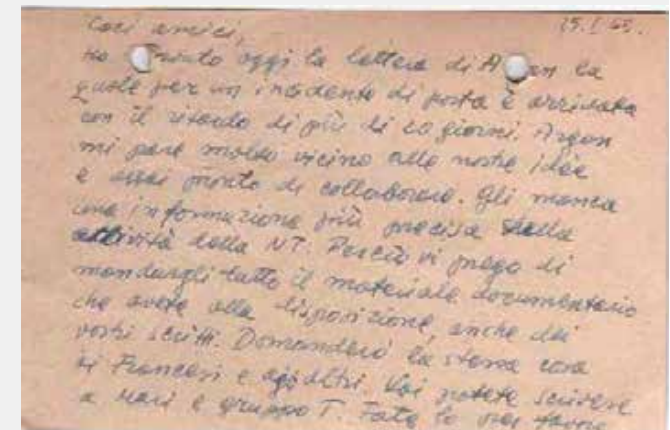 25.I.65.
Cari amici,
ho oggi la lettera di la
quale per un incidente di posta è arrivata
con il ritardo di più di 20 giorni. Argan
mi pare molto vicino alle nostre idee
e assai pronto di collaborare. Gli manca
una informazione più precisa della
attività della NT. Perciò vi prego di
mandargli tutto il materiale documentario
che avete alla disposizione, anche dei
vostri scritti. Domanderò la stessa cosa
ai Francesi e agli altri. Voi potete scrivere
a Mari e gruppo T. Fate lo per favore